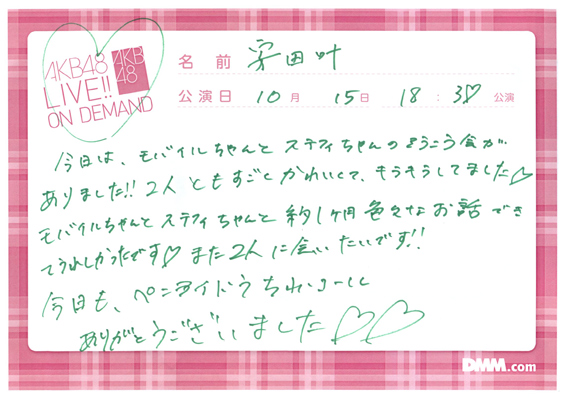 AKB48
LIVE!!
ON DEMAND
AKB
48
名前 宇田叶
公演日 10月 15日 18:30 公演
今日は、モバイルちゃんと ステフィちゃんの そうこう会が
ありました!! 2人ともすごくかわいくて、キラキラしてました♡
モバイルちゃんと ステフィちゃんと 約1ヶ月 色々なお話でき
てうれしかったです♡ また2人に会いたいです!!
今日も、
ありがとうございました♡♡
DMM.com